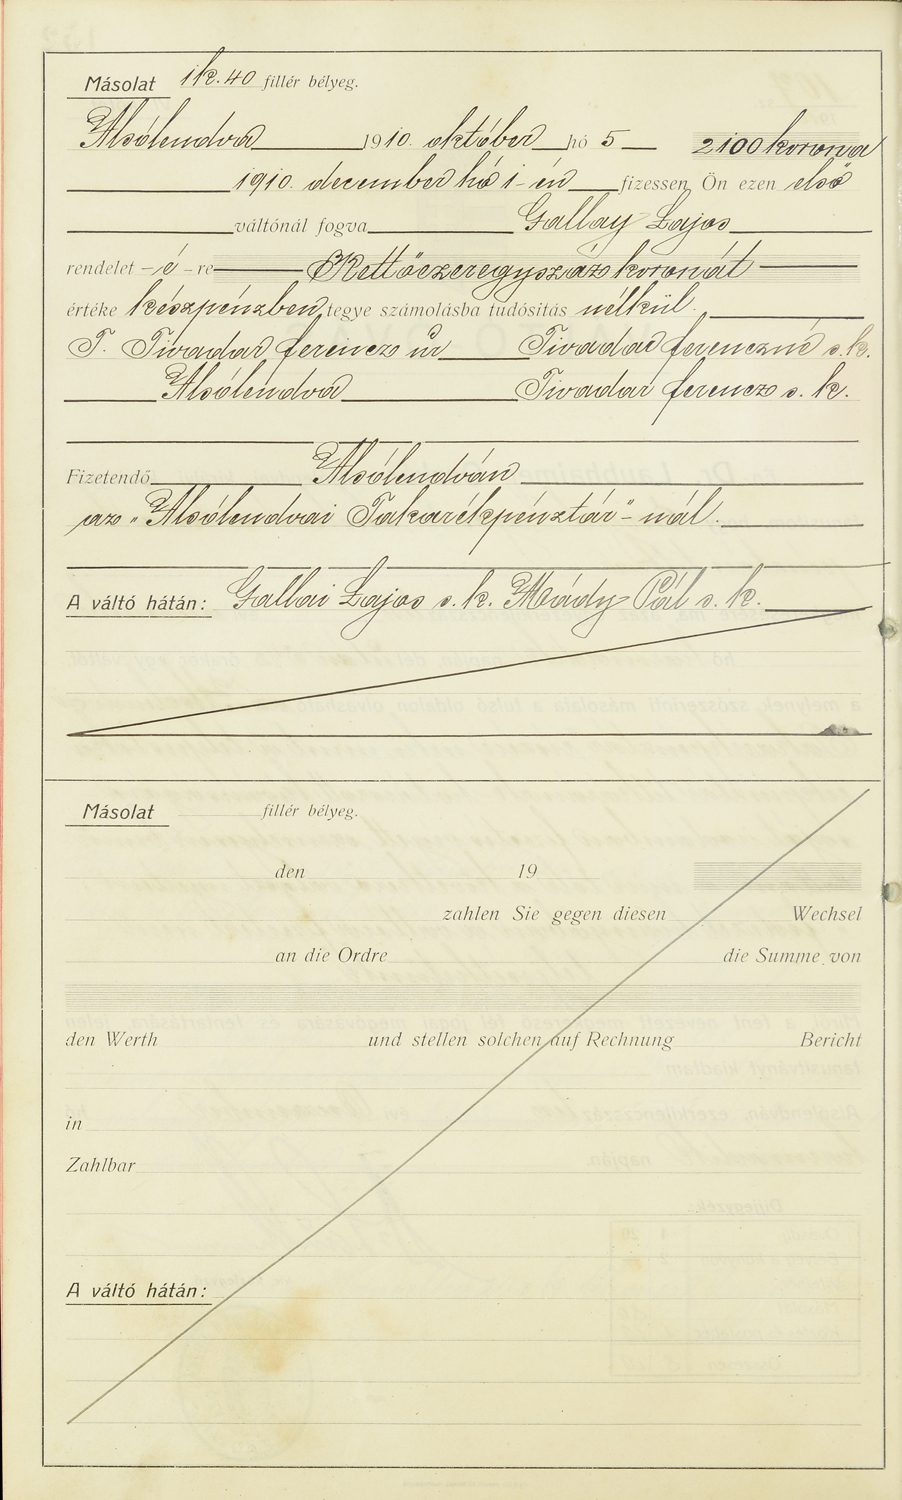 Másolat 1 k. 40 fillér bélyeg.
Alsólendva 1910. október hó 5 2100 korona
1910. december hó 1-én fizessen Ön ezen első
váltónál fogva Gallay Lajos
rendelet -é- re Kettőezeregyszáz koronát
értéke készpénzben tegye számolásba tudósitás nélkül.
T. Tivadar ferencz úr Tivadar ferenczné s. k.
Alsólendva Tivadar ferencz s. k.
Fizetendő Alsólendván
az „Alsólendvai Takarékpénztár"-nál.
A váltó hátán: Gallai Lajos s. k. Mády Pál s. k.
Másolat fillér bélyeg.
den 19
zahlen Sie gegen diesen Wechsel
an die Ordre die Summe von
den Werth und stellen solchen auf Rechnung Bericht
in
Zahlbar
A váltó hátán: